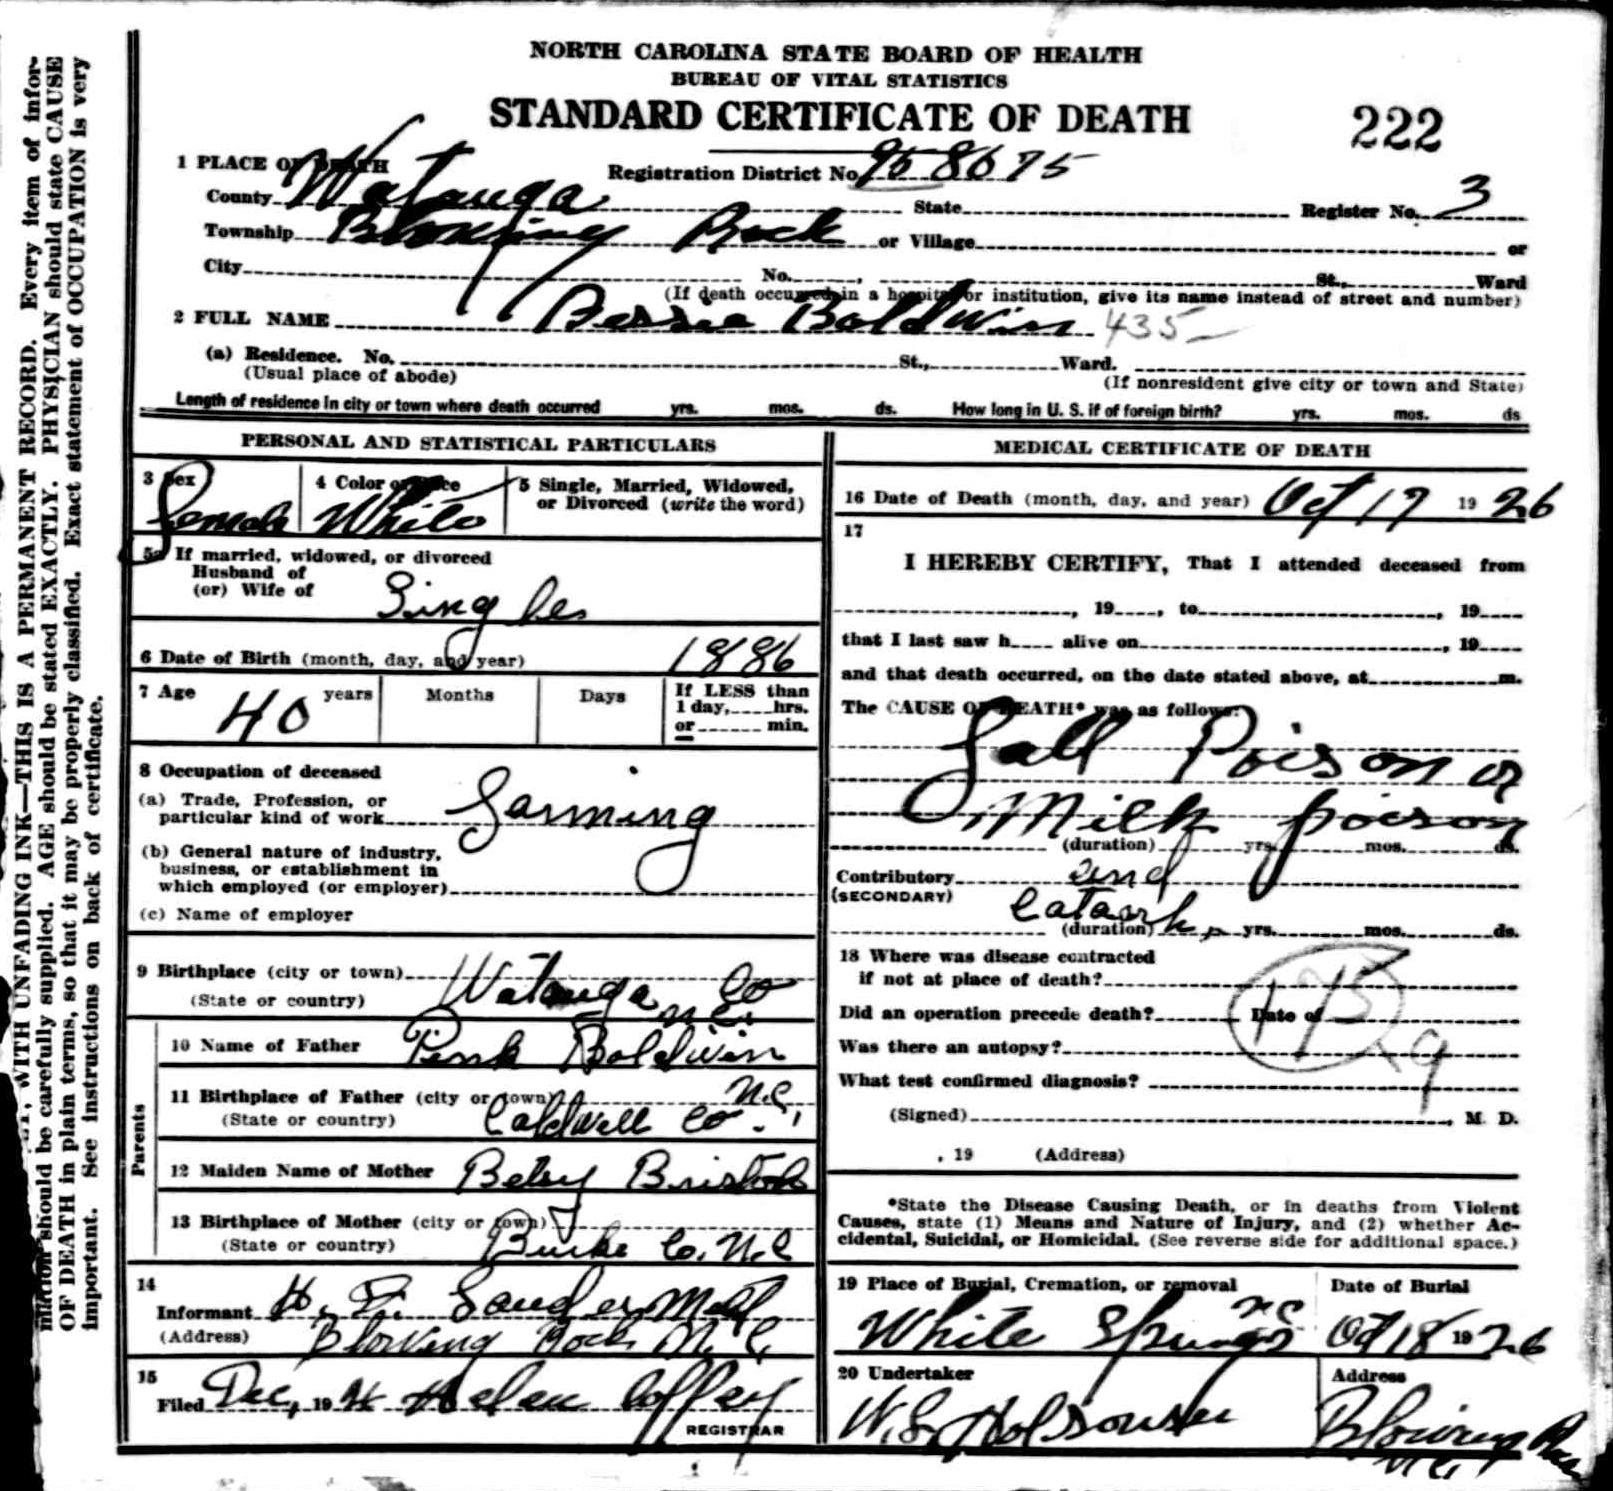 NORTH CAROLINA STATE BOARD OF HEALTH
BUREAU OF VITAL STATISTICS
STANDARD CERTIFICATE OF DEATH
222
1 PLACE OF DEATH
Registration District No. 95-8675
County Watauga State Register No. 3
Township Blowing Rock or Village or
City No. , St., Ward
(If death occurred in a hospital or institution, give its name instead of street and number)
2 FULL NAME Bessie Baldwin 435-
(a) Residence. No. St., Ward.
(Usual place of abode) (If nonresident give city or town and State)
Length of residence in city or town where death occurred yrs. mos. ds. How long in U. S. if of foreign birth? yrs. mos. ds
PERSONAL AND STATISTICAL PARTICULARS
3 Sex 4 Color or Race 5 Single, Married, Widowed,
or Divorced (write the word)
Female White
5a If married, widowed, or divorced
Husband of
(or) Wife of
Single
6 Date of Birth (month, day, and year) 1886
7 Age 40 years Months Days If LESS than
1 day, hrs.
or min.
8 Occupation of deceased
(a) Trade, Profession, or
particular kind of work Farming
(b) General nature of industry,
business, or establishment in
which employed (or employer)
(c) Name of employer
9 Birthplace (city or town) Watauga Co
(State or country) N.C.
Parents
10 Name of Father Pink Baldwin
11 Birthplace of Father (city or town) N.C.
(State or country) Caldwell Co.
12 Maiden Name of Mother Betsy
13 Birthplace of Mother (city or town)
(State or country) Burke Co. N.C
14
Informant
(Address) Blowing Rock N.C.
15
Filed Dec, 19 Helen Coffey
REGISTRAR
MEDICAL CERTIFICATE OF DEATH
16 Date of Death (month, day, and year) Oct 17 1926
17
I HEREBY CERTIFY, That I attended deceased from
, 19 , to , 19
that I last saw h alive on , 19
and that death occurred, on the date stated above, at m.
The CAUSE OF DEATH* was as follows:
Gall Poison or
Milk poison
(duration) yrs. mos. ds.
Contributory and
(SECONDARY) Catarrh
(duration) yrs. mos. ds.
18 Where was disease contracted
if not at place of death?
Did an operation precede death? Date of
175
Was there an autopsy?
9
What test confirmed diagnosis?
(Signed) , M. D.
, 19 (Address)
*State the Disease Causing Death, or in deaths from Violent
Causes, state (1) Means and Nature of Injury, and (2) whether Ac-
cidental, Suicidal, or Homicidal. (See reverse side for additional space.)
19 Place of Burial, Cremation, or removal Date of Burial
White Springs N C Oct 18 1926
20 Undertaker Address
W.L. Blowing Rock
N C
WITH UNFADING INK—THIS IS A PERMANENT RECORD. Every item of infor-
mation should be carefully supplied. AGE should be stated EXACTLY. PHYSICIAN should state CAUSE
OF DEATH in plain terms, so that it may be properly classified. Exact statement of OCCUPATION is very
important. See instructions on back of certificate.